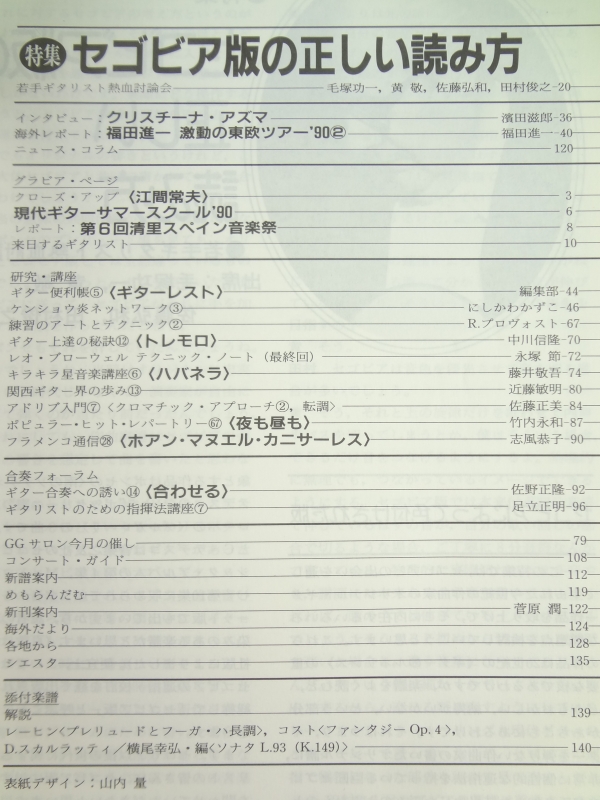 特集 セゴビア版の正しい読み方
若手ギタリスト熱血討論会 毛塚功一，黄 敬，佐藤弘和，田村俊之-20
インタビュー：クリスチーナ・アズマ 濱田滋郎-36
海外レポート：福田進一 激動の東欧ツアー'90② 福田進一-40
ニュース・コラム 120
グラビア・ページ
クローズ・アップ〈江間常夫〉 3
現代ギターサマースクール'90 6
レポート：第6回清里スペイン音楽祭 8
来日するギタリスト 10
研究・講座
ギター便利帳⑤〈ギターレスト〉 編集部-44
ケンショウ炎ネットワーク③ にしかわかずこ-46
練習のアートとテクニック② R.プロヴォスト-67
ギター上達の秘訣⑫〈トレモロ〉 中川信隆-70
レオ・ブローウェル テクニック・ノート（最終回） 永塚 節-72
キラキラ星音楽講座⑥〈ハバネラ〉 藤井敬吾-74
関西ギター界の歩み⑬ 近藤敏明-80
アドリブ入門⑦〈クロマチック・アプローチ②，転調〉 佐藤正美-84
ポピュラー・ヒット・レパートリー㊿〈夜も昼も〉 竹内永和-87
フラメンコ通信㉘〈ホアン・マヌエル・カニサーレス〉 志風恭子-90
合奏フォーラム
ギター合奏への誘い⑭〈合わせる〉 佐野正隆-92
ギタリストのための指揮法講座⑦ 足立正明-96
GGサロン今月の催し 79
コンサート・ガイド 108
新譜案内 112
めもらんだむ 119
新刊案内 菅原 潤-122
海外だより 124
各地から 128
シエスタ 135
添付楽譜
解説 139
レーヒン〈プレリュードとフーガ・ハ長調〉，コスト〈ファンタジーOp.4〉，
D.スカルラッティ／横尾幸弘・編〈ソナタL.93（K.149）〉 140
表紙デザイン：山内 量